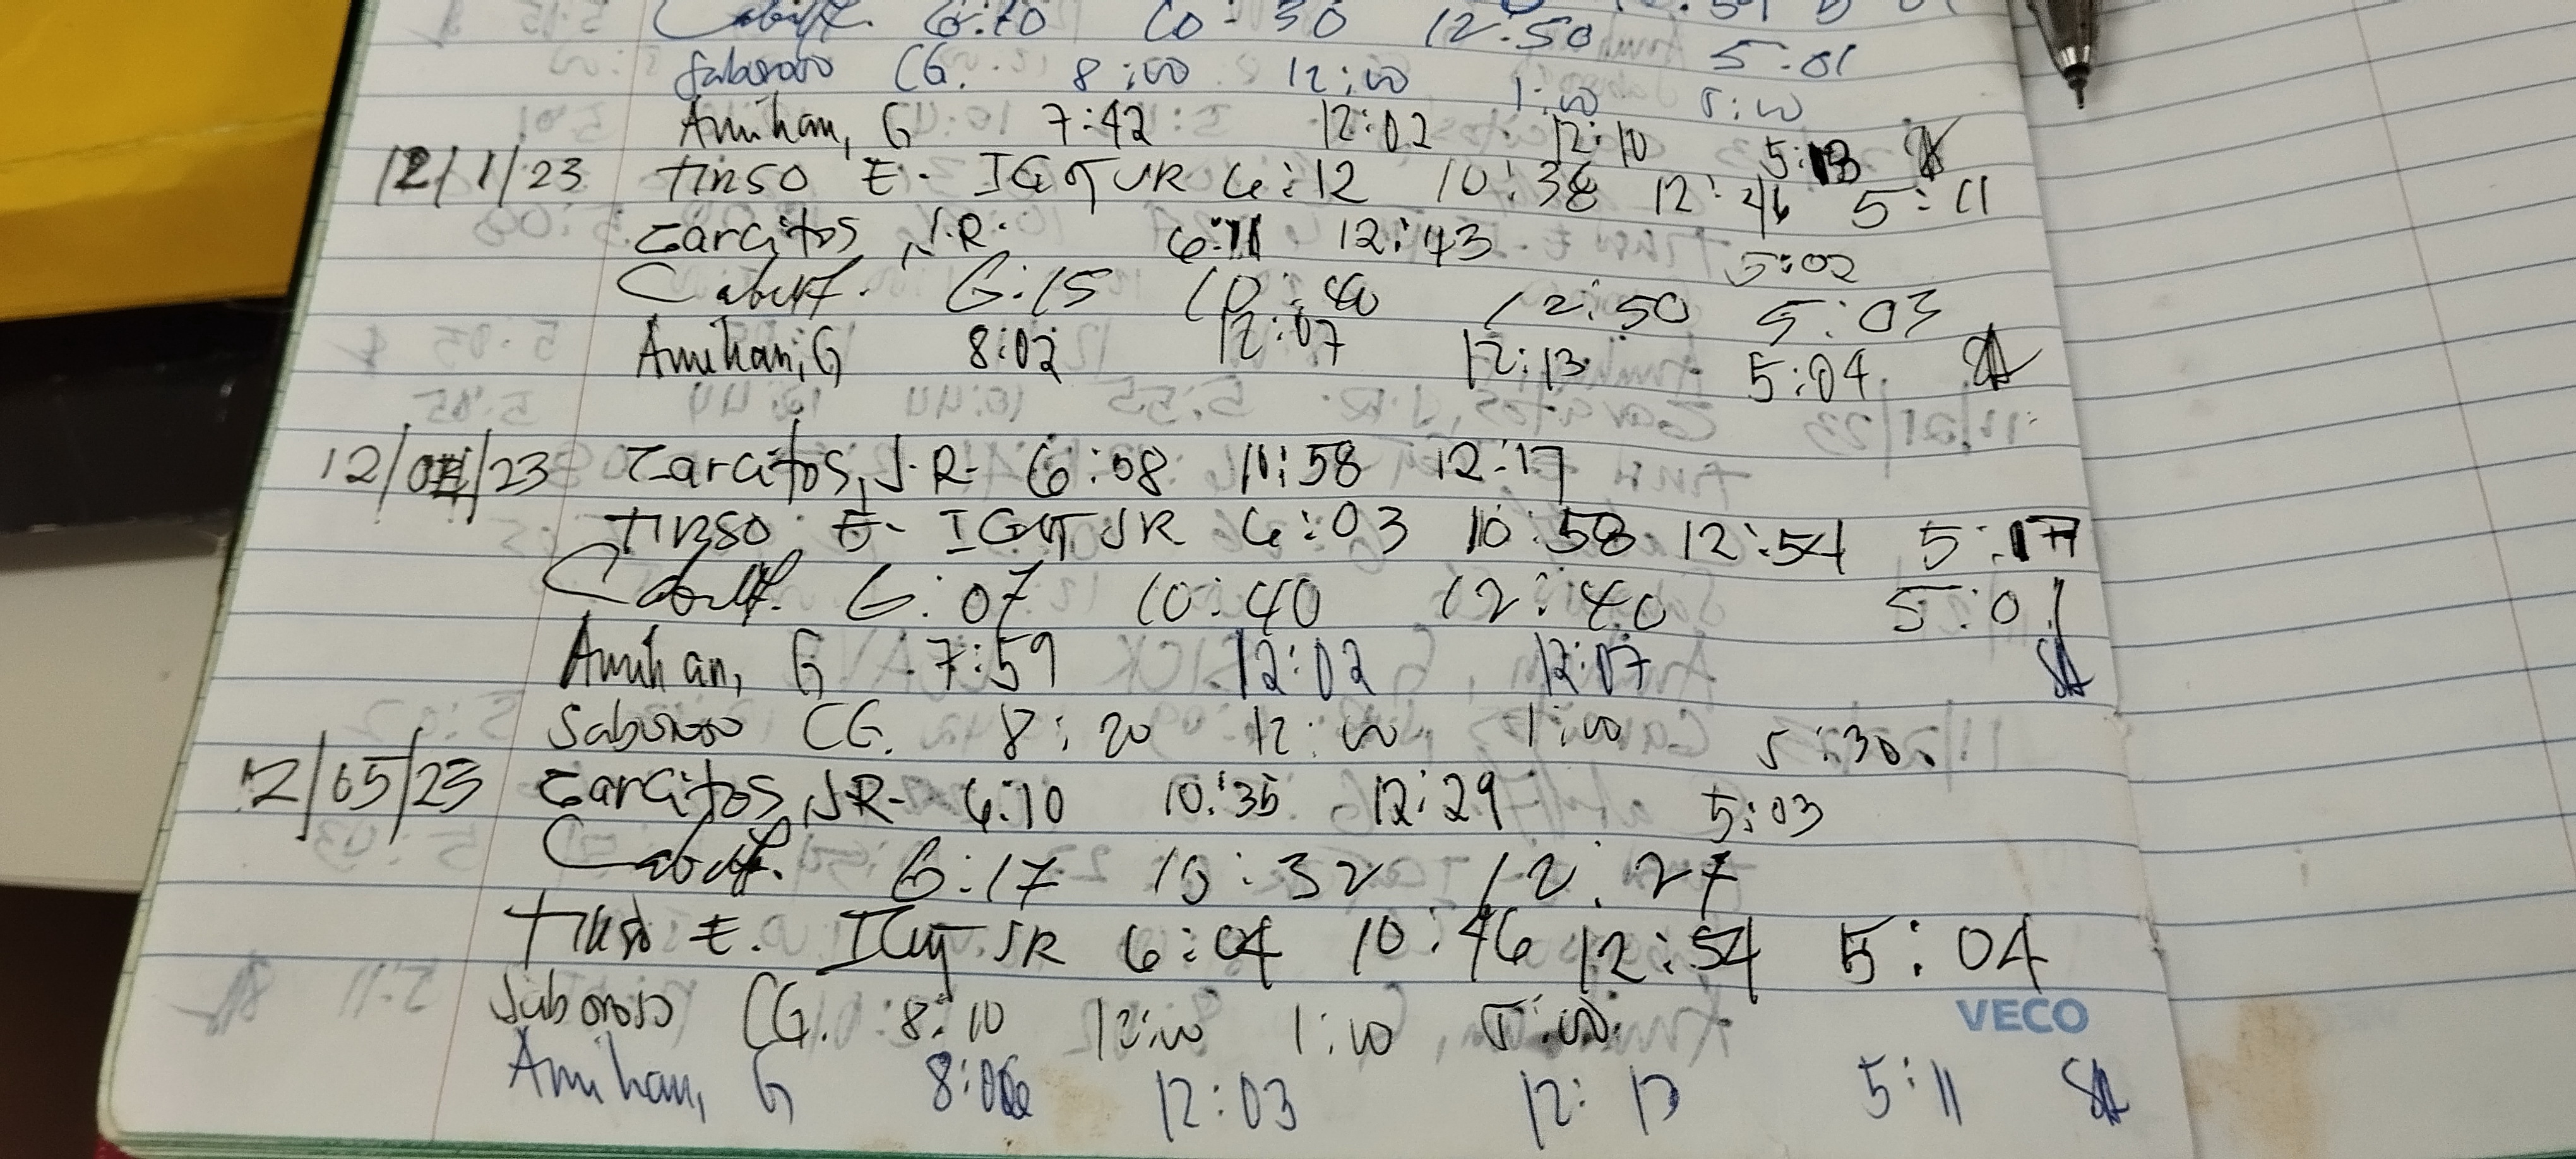 6:10 10:30 12:50 5:01
Saboroso CG. 8:00 12:00 1:00 5:00
Amihan, G 7:42 12:02 12:10 5:13
12/1/23 TIRSO E. IGOT JR 6:12 10:38 12:46 5:11
Zarcitos, J.R. 6:11 12:43 5:02
6:15 10:40 12:50 5:03
Amihan, G 8:02 12:07 12:13 5:04
12/04/23 Zarcitos, J.R. 6:08 11:58 12:17
TIRSO E. IGOT JR 6:03 10:58 12:54 5:17
6:07 10:40 12:40 5:01
Amihan, G 7:59 12:02 12:07
Saboroso CG. 8:20 12:00 1:00 5:30
12/05/23 Zarcitos, J.R. 6:10 10:35 12:29 5:03
6:17 10:32 12:27
TIRSO E. IGOT JR 6:04 10:46 12:54 5:04
Saboroso CG. 8:10 12:00 1:10 5:00
VECO
Amihan, G 8:06 12:03 12:13 5:11